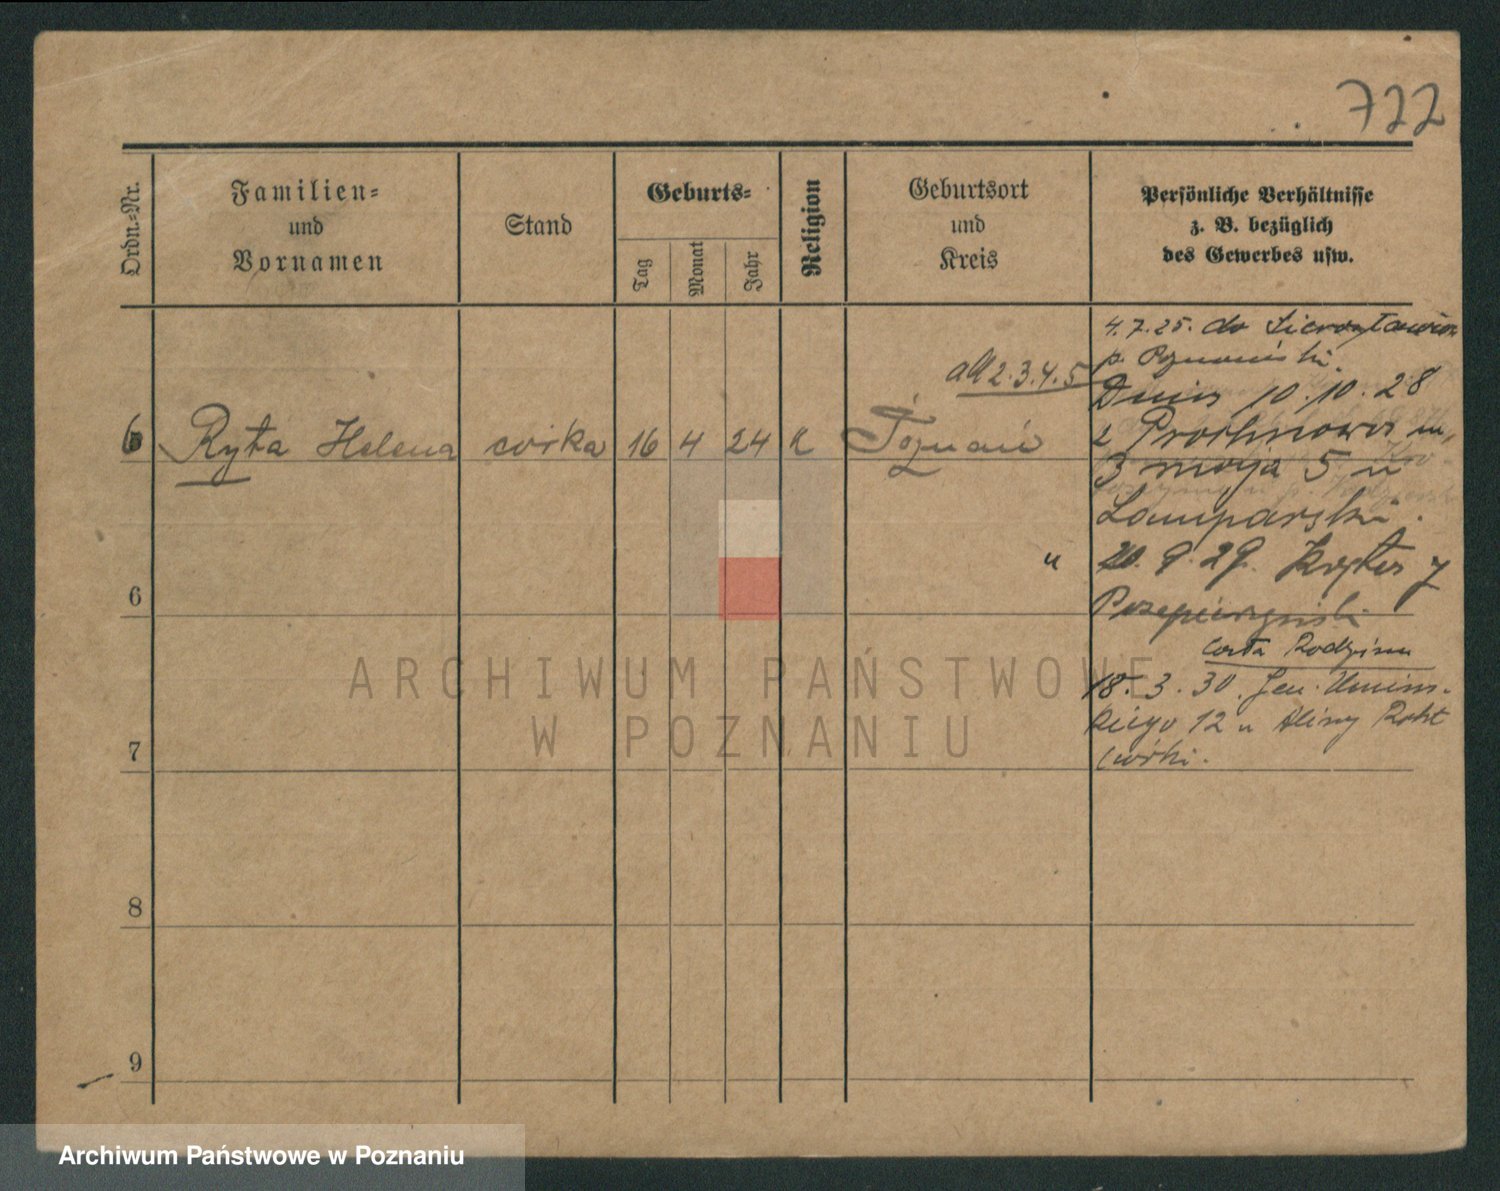 722
Ordn.=Nr.
Familien=
und
Vornamen
Stand
Geburts=
Tag
Monat
Jahr
Religion
Geburtsort
und
Kreis
Persönliche Verhältnisse
z. B. bezüglich
des Gewerbes usw.
4.7.25. do
p.
ad 2.3.4.5
10.10.28
6 Ryta Helena córka 16 4 24 K Poznań
3 maja 5 u
Lamparski.
" 20.9.29. 7
6
cała Rodzina
18.3.30. Gen. Umińs-
kiego 12 u
7
córki.
8
9
ARCHIWUM PAŃSTWOWE
W POZNANIU
Archiwum Państwowe w Poznaniu